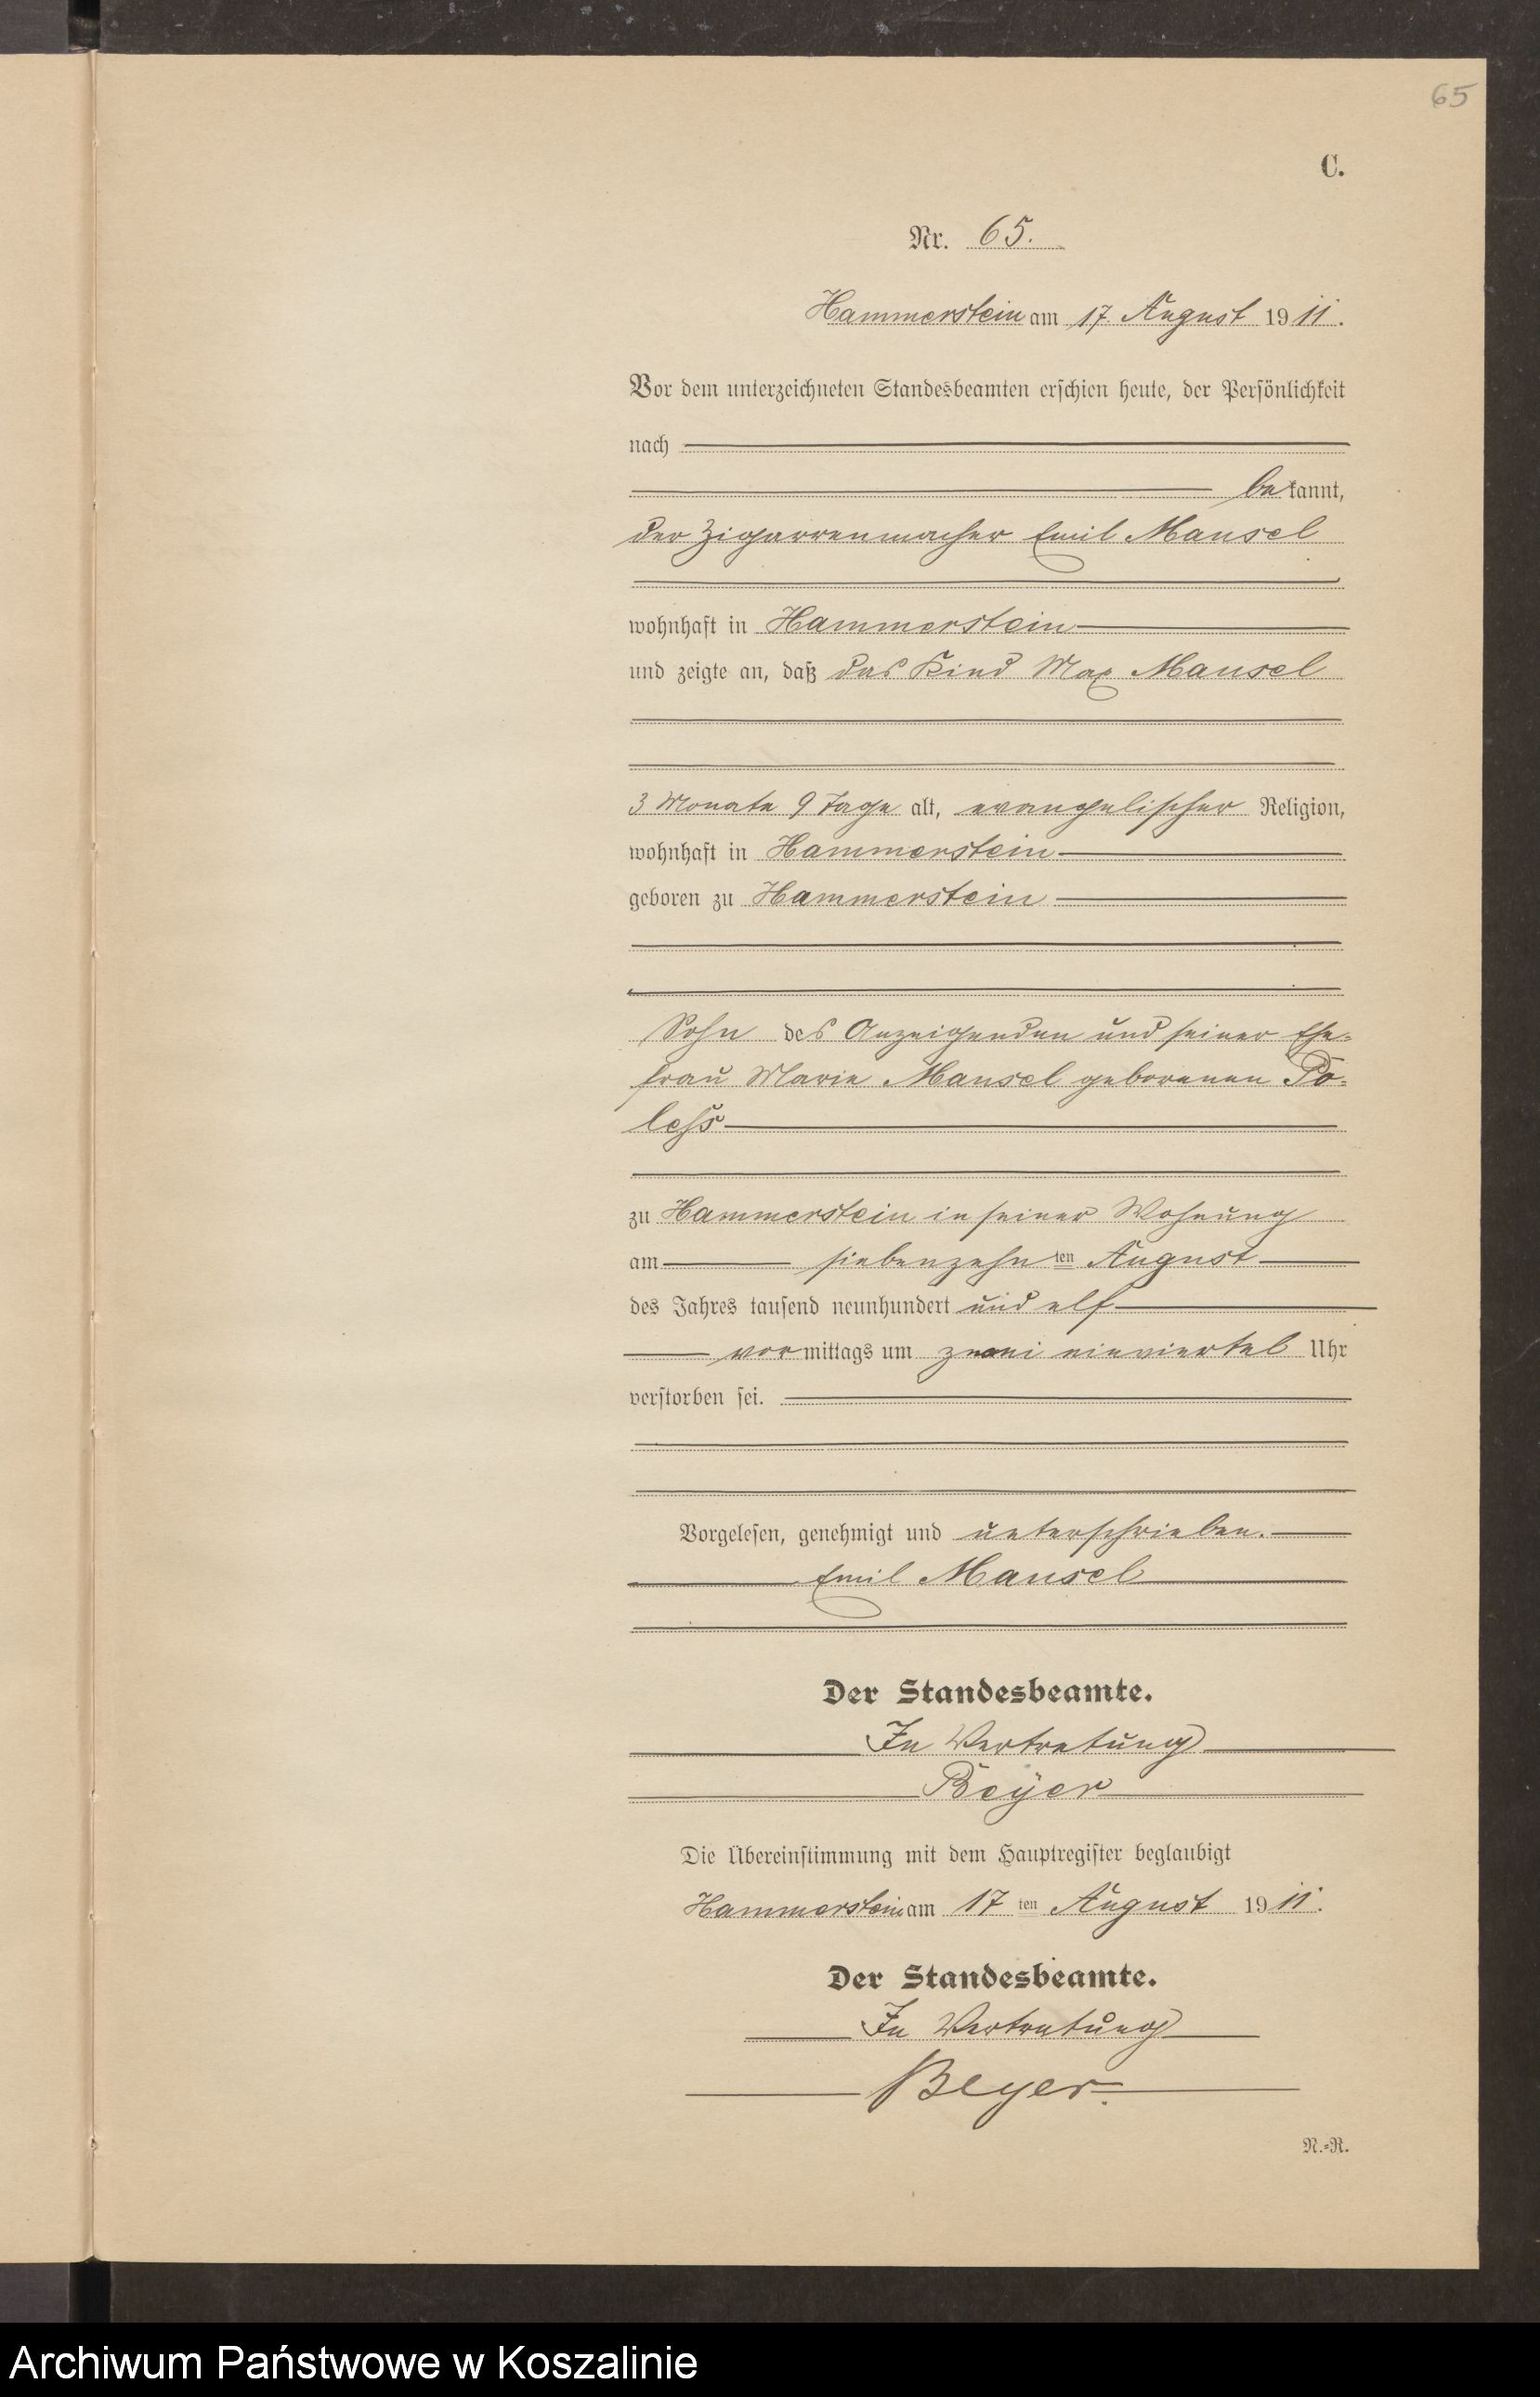 65
C.
Nr. 65.
Hammerstein am 17. August 1911.
Vor dem unterzeichneten Standesbeamten erschien heute, der Persönlichkeit
nach
bekannt,
der Zigarrenmacher Emil Mansel
wohnhaft in Hammerstein
und zeigte an, daß das Kind Max Mansel
3 Monate 9 Tage alt, evangelischer Religion,
wohnhaft in Hammerstein
geboren zu Hammerstein
Sohn des Anzeigenden und seiner Ehe-
frau Marie Mansel geborenen Po-
less
zu Hammerstein in seiner Wohnung
am siebenzehnten August
des Jahres tausend neunhundert und elf
vormittags um zwei einviertel Uhr
verstorben sei.
Vorgelesen, genehmigt und unterschrieben.
Emil Mansel
Der Standesbeamte.
In Vertretung
Beyer
Die Übereinstimmung mit dem Hauptregister beglaubigt
Hammerstein am 17ten August 1911.
Der Standesbeamte.
In Vertretung
Beyer.
N.-R.
Archiwum Państwowe w Koszalinie